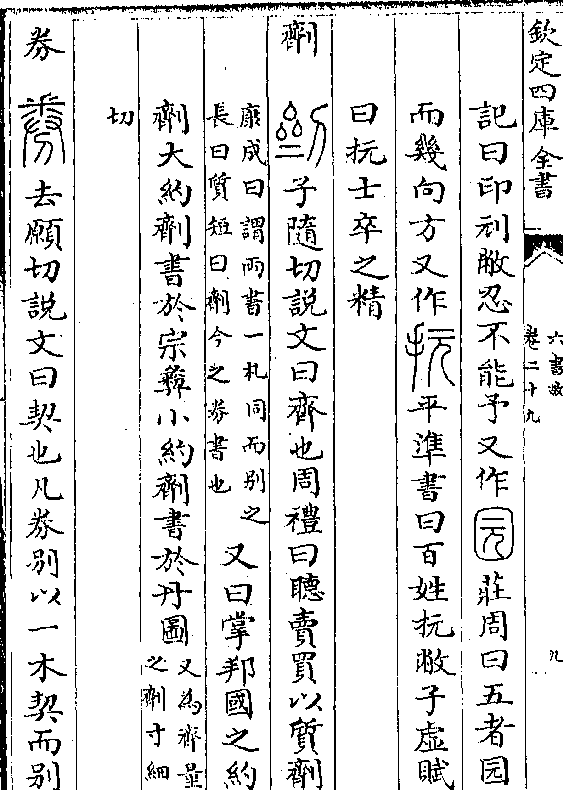 欽定四庫全書
六書故
卷二十九
九
記曰印刓敝忍不能予又作园莊周曰五者园
而幾向方又作抏平準書曰百姓抏敝子虛賦
曰抏士卒之精
劑 子隨切說文曰齊也周禮曰聽賣買以質劑
康成曰謂兩書一札同而別之
長曰質短曰劑今之券書也
又曰掌邦國之約
劑大約劑書於宗彝小約劑書於丹圖
又為齊量
之劑寸細
切
券 去願切說文曰契也凡券別以一木契而別